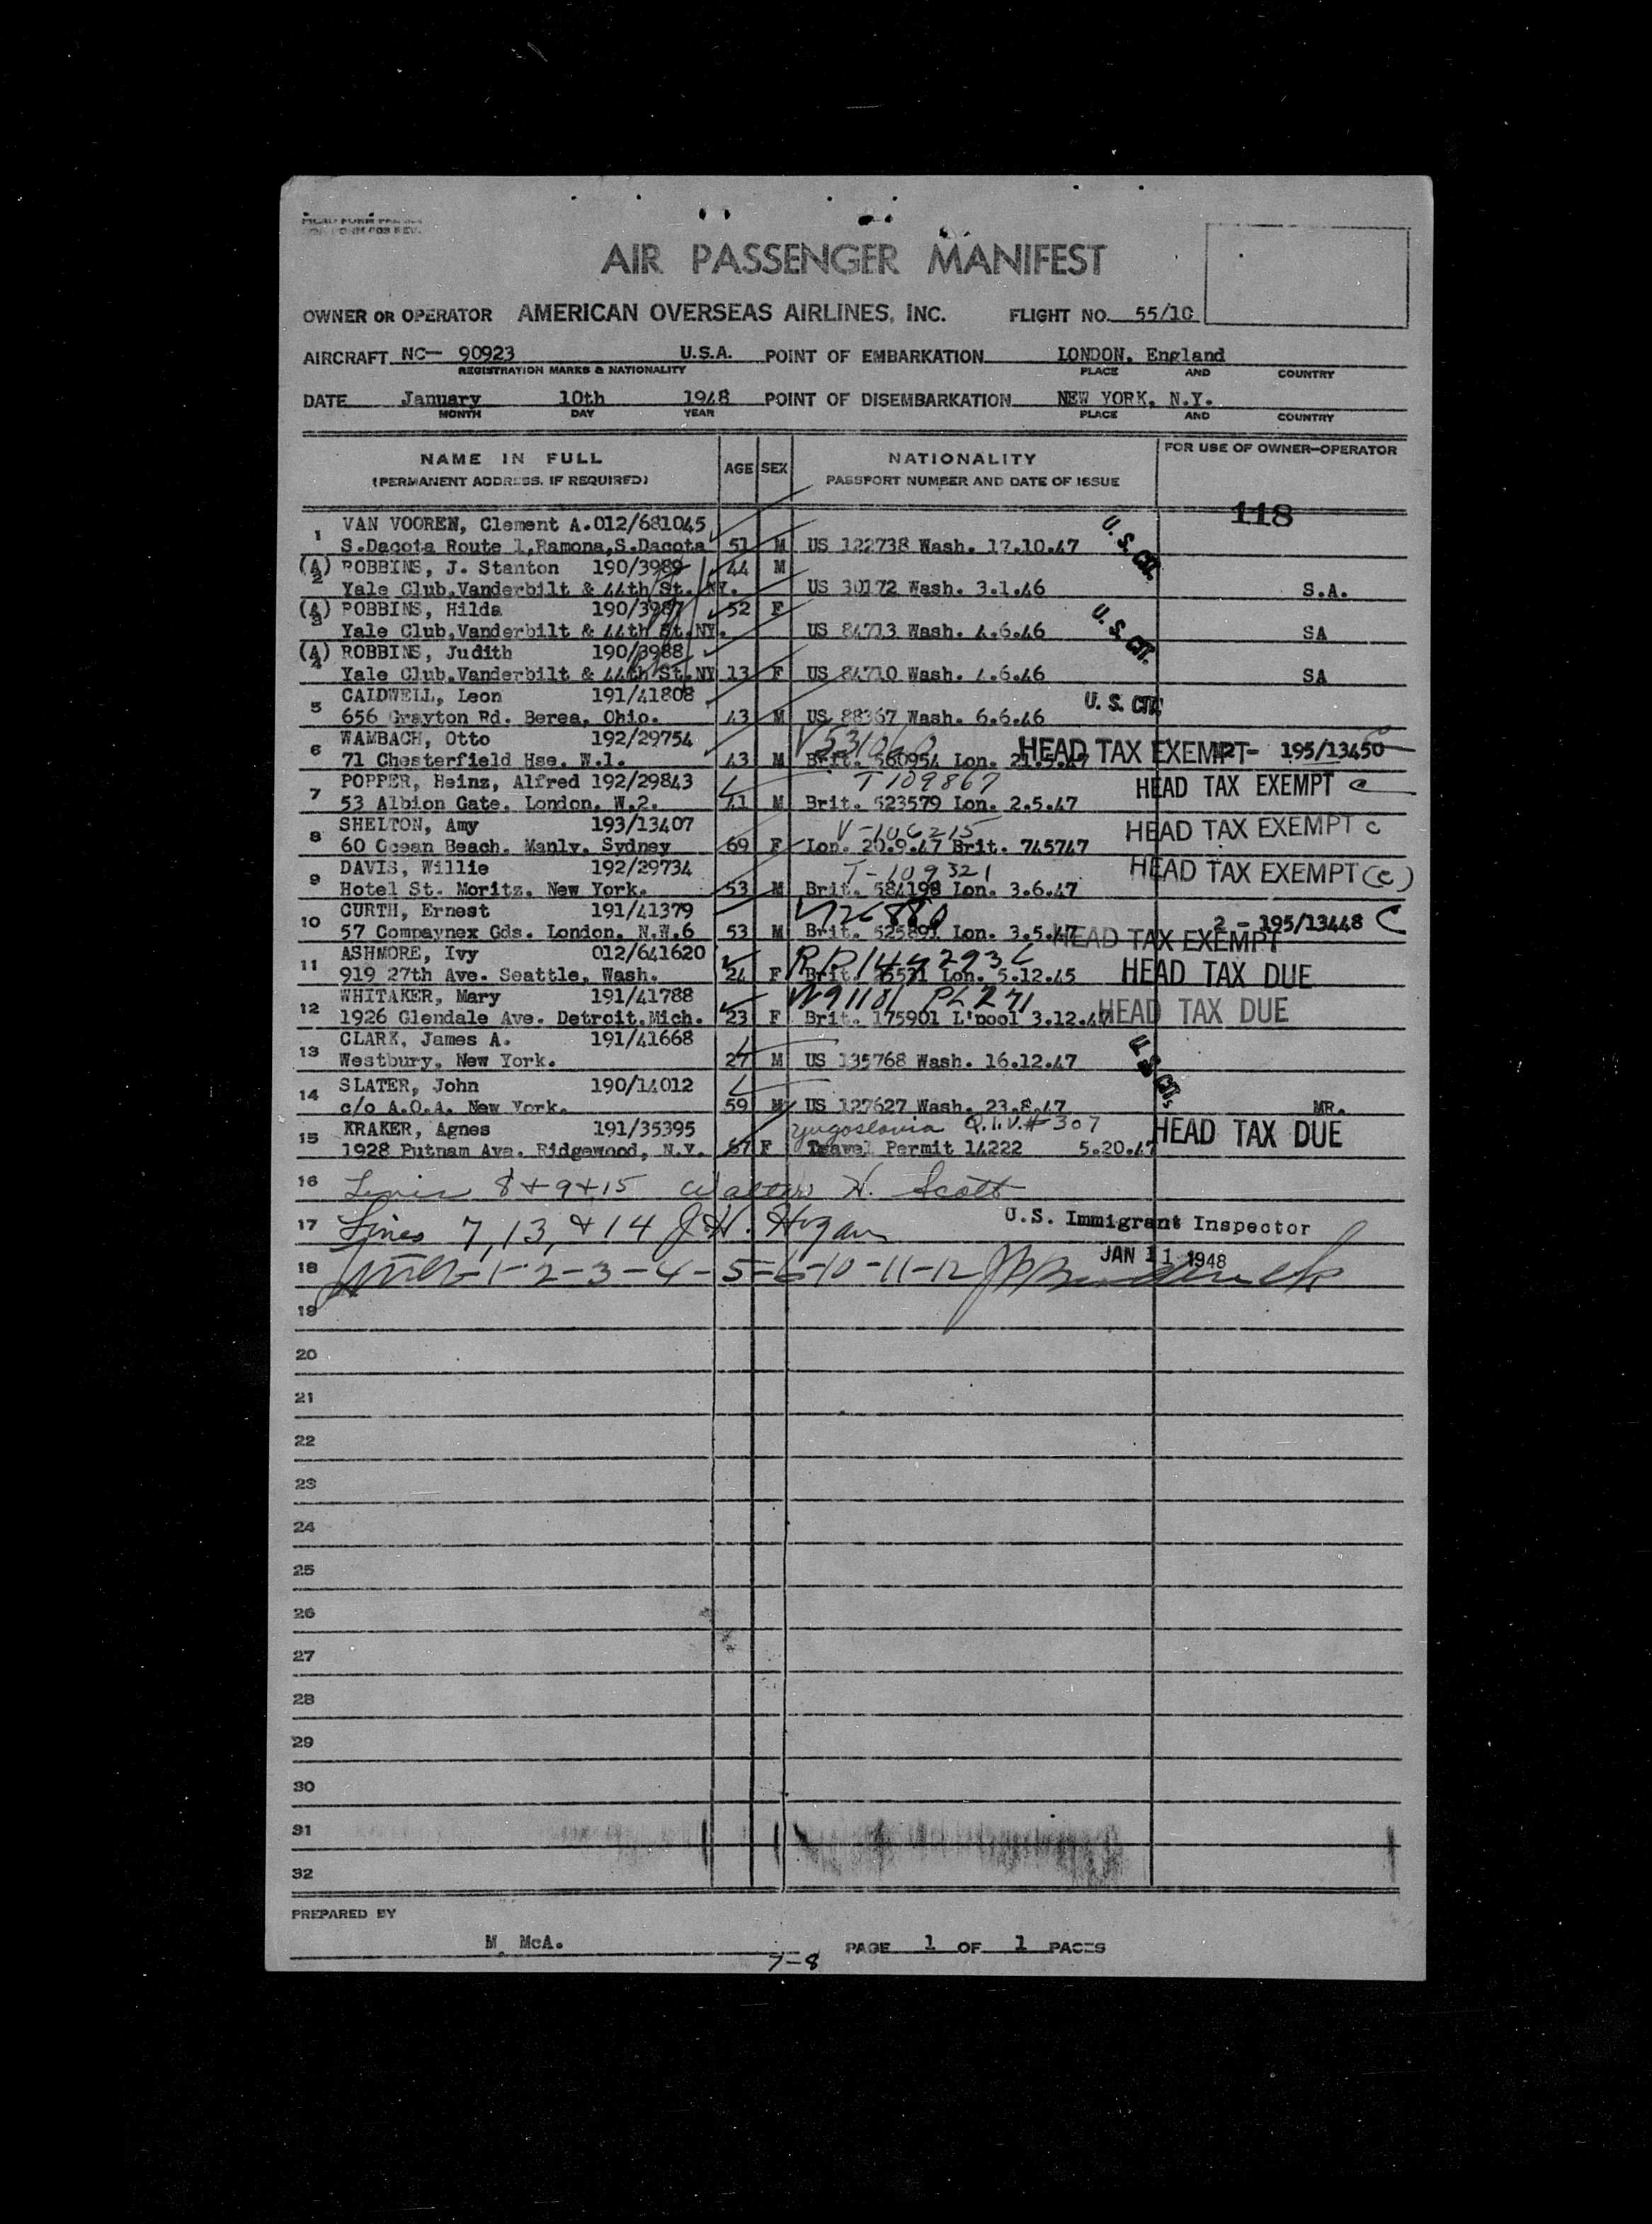 AIR PASSENGER MANIFEST
OWNER OR OPERATOR AMERICAN OVERSEAS AIRLINES, INC. FLIGHT NO. 55/10
AIRCRAFT NC- 90923 U.S.A. POINT OF EMBARKATION LONDON, England
REGISTRATION MARKS & NATIONALITY PLACE AND COUNTRY
DATE January 10th 1948 POINT OF DISEMBARKATION NEW YORK, N.Y.
MONTH DAY YEAR PLACE AND COUNTRY
NAME IN FULL AGE SEX NATIONALITY FOR USE OF OWNER-OPERATOR
(PERMANENT ADDRESS, IF REQUIRED) PASSPORT NUMBER AND DATE OF ISSUE
118
1 VAN VOOREN, Clement A. 012/681045
S.Dacota Route 1,Ramona,S.Dacota 51 M US 122738 Wash. 17.10.47 U.S. CIT.
(A) 2 ROBBINS, J. Stanton 190/3989 44 M
Yale Club,Vanderbilt & 44th St. NY. US 30172 Wash. 3.1.46 S.A.
(A) 3 ROBBINS, Hilda 190/3987 52 F
Yale Club,Vanderbilt & 44th St.NY. US 84713 Wash. 4.6.46 U.S. CIT. SA
(A) 4 ROBBINS, Judith 190/3988
Yale Club,Vanderbilt & 44th St.NY 13 F US 84710 Wash. 4.6.46 SA
5 CALDWELL, Leon 191/41808
656 Grayton Rd. Berea, Ohio. 43 M US 88367 Wash. 6.6.46 U.S. CIT.
6 WAMBACH, Otto 192/29754 HEAD TAX EXEMPT 195/13450
71 Chesterfield Hse. W.1. 43 M Brit. 560954 Lon.
7 POPPER, Heinz, Alfred 192/29843 T 109867 HEAD TAX EXEMPT c
53 Albion Gate. London. W.2. 41 M Brit. 523579 Lon. 2.5.47
8 SHELTON, Amy 193/13407 V-106215 HEAD TAX EXEMPT c
60 Ocean Beach. Manly. Sydney 69 F Lon. 20.9.47 Brit. 745747
9 DAVIS, Willie 192/29734 T-109321 HEAD TAX EXEMPT (c)
Hotel St. Moritz. New York. 53 M Brit. 584198 Lon. 3.6.47
10 CURTH, Ernest 191/41379 2 - 195/13448 C
57 Compaynex Gds. London, N.W.6 53 M Brit. 525891 Lon. 3.5.47 HEAD TAX EXEMPT
11 ASHMORE, Ivy 012/641620
919 27th Ave. Seattle, Wash. 24 F Brit. Lon. 5.12.45 HEAD TAX DUE
12 WHITAKER, Mary 191/41788
1926 Glendale Ave. Detroit.Mich. 23 F Brit. 175901 L'pool 3.12.47 HEAD TAX DUE
13 CLARK, James A. 191/41668
Westbury, New York. 27 M US 135768 Wash. 16.12.47 U.S. CIT.
14 SLATER, John 190/14012
c/o A.O.A. New York. 59 M US 127627 Wash. 23.8.47 MR.
15 KRAKER, Agnes 191/35395 Yugoslavia Q.I.V.# 307 HEAD TAX DUE
1928 Putnam Ave. Ridgewood, N.Y. 67 F Travel Permit 14222 5.20.47
16 Lines 8+9+15 Walter H. Scott
17 Lines 7, 13, & 14 J.H. Hogan U.S. Immigrant Inspector
18 Lines-1-2-3-4-5-6-10-11-12 JAN 11 1948
19
20
21
22
23
24
25
26
27
28
29
30
31
32
PREPARED BY
M. McA. PAGE 1 OF 1 PAGES
7-8